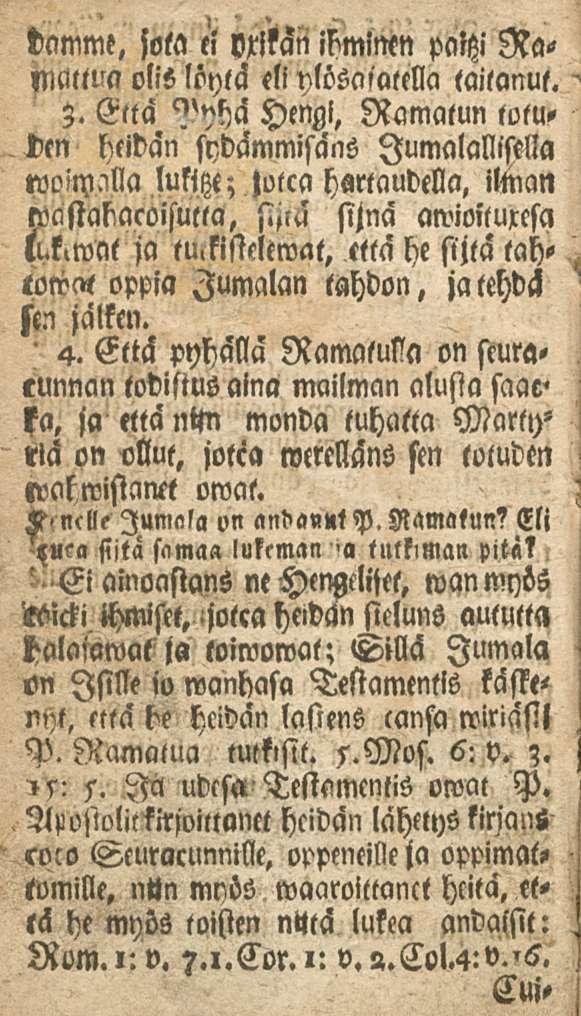 damme, jota ei yxikän ihminen paitzi Ra-
mattua olis löytä eli ylösajatella taitanut.
3. Että Pyhä Hengi, Ramatun totu-
den heidän sydämmisäns Jumalallisella
woimalla lukitze; jotca hartaudella, ilman
wastahacoisutta, sijtä sijnä awioituxesa
lukewat ja tutkistelewat, että he sijtä tah-
towat oppia Jumalan tahdon, ja tehdä
sen jälken.
4. Että pyhällä Ramatulla on seura-
cunnan todistus aina mailman alusta saac-
ka, ja että niin monda tuhatta Marty-
riä on ollut, jotca werelläns sen totuden
wahwistanet owat.
Kenelle Jumala on andanut P. Ramatun? Eli
cuca siitä samaa lukeman ja tutkiman pitä?
Ei ainoastans ne Hengeliset, wan myös
caicki ihmiset, jotca heidän sieluns autuutta
halajawat ja toiwowat; Sillä Jumala
on Isille jo wanhasa Testamentis käske-
nyt, että he heidän lastens cansa wiriäsil
P. Ramatua tutkisit. 5. Mos. 6: v. 3.
15: 5. Ja udesa Testamentis owat P.
Apostolit kirjoittanet heidän lähetys kirjans
coco Seuracunnille, oppeneille ja oppimat-
tomille, niin myös waaroittanet heitä, et-
tä he myös toisten niitä lukea andaisit:
Rom. 1: v. 7. 1. Cor. 1: v. 2. Col. 4: v. 16.
Cui-